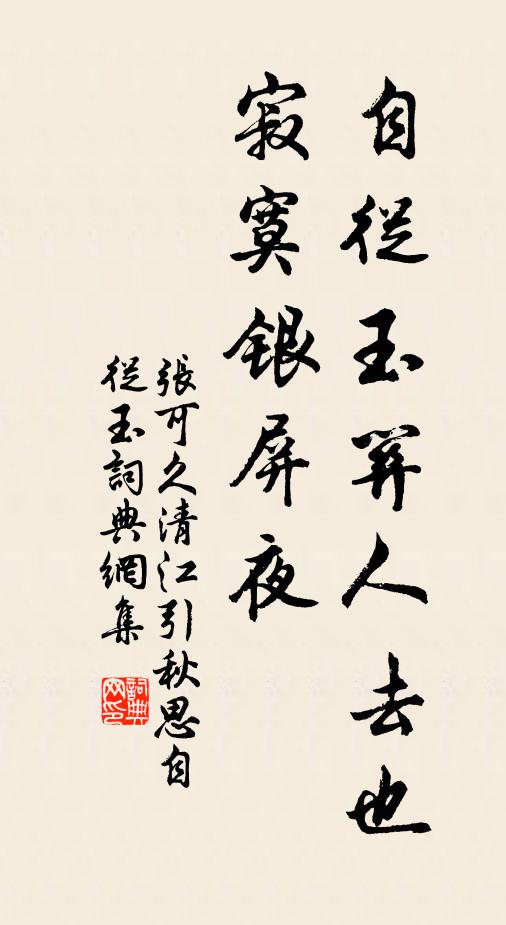 自從玉筓人去也
寂寞銀屏夜
張可久清江引秋思自
從玉詞典網集
詞典
网印